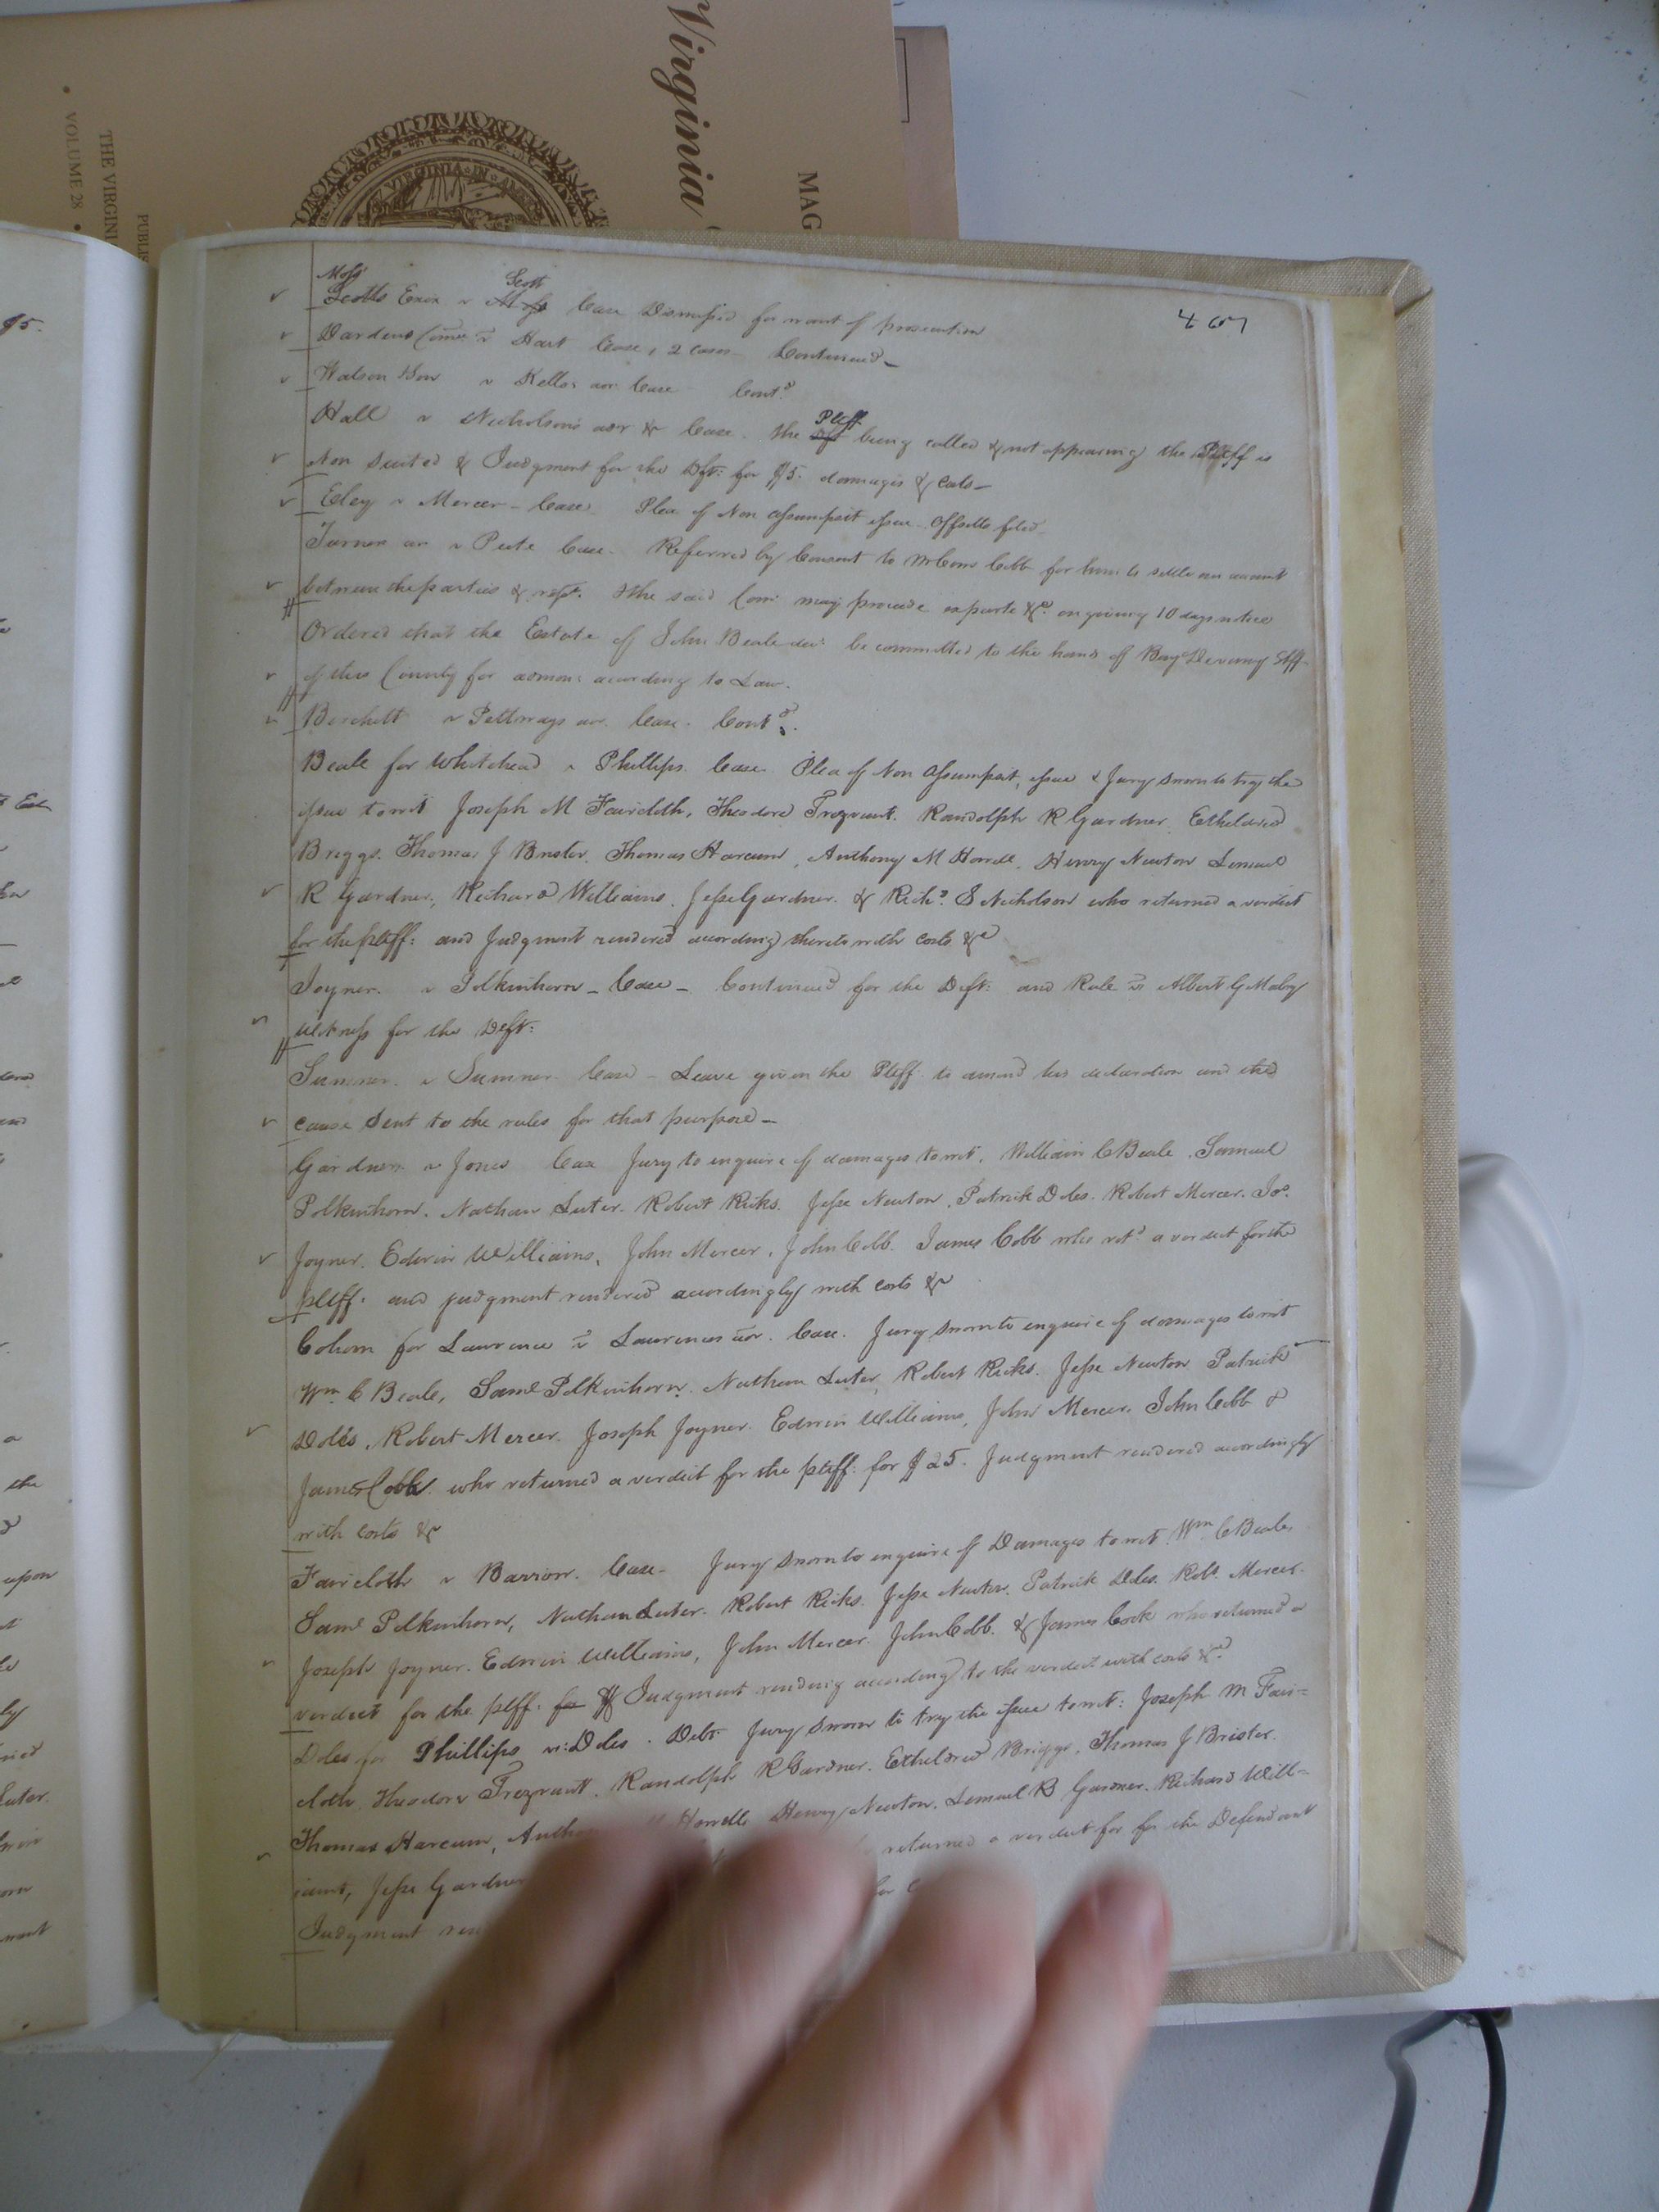 Virginia
MAG
THE VIRGINI
VOLUME 28
PUBLIS
VIRGINIA IN
407
Moss Scott
Scotts Exix v Moss Case Dismissed for want of prosecution
Dardens Comee v Hart Case, 2 cases Continued
Watson Gov v Kellos aor Case Contd
Hall v Nicholson's aor &c Case. The Dft Pltff. being called & not appearing the Pltff is
Non Suited & Judgment for the Dft: for $5. damages & costs
Eley v Mercer Case Plea of Non assumpsit issue offsetts filed
Turner aor v Pete Case. Referred by Consent to Mr Com Cobb for him to settle an account
between the parties & rept. & the said Com: may proceede exparte &c. on giving 10 days notice
Ordered that the Estate of John Beale decd be committed to the hands of Benj Devany Shff
of this County for admon: according to Law.
Birchett v Pettways aor. Case. Contd.
Beale for Whitehead v Phillips Case. Plea of Non Assumpsit, issue & Jury sworn to try the
issue to wit Joseph M Faircloth, Theodore Trezvant. Randolph R Gardner. Etheldred
Briggs. Thomas J Brister. Thomas Harcum, Anthony M Howell. Henry Newton Lemuel
R Gardner, Richard Williams. Jesse Gardner. & Richd. S Nicholson who returned a verdict
for the pltff: and Judgment rendered according thereto with costs &c
Joyner. v Polkinhorn Case Continued for the Deft: and Rule vs Albert G Maloy
witness for the Deft:
Sumner. v Sumner. Case Leave given the Pltff. to amend his declaration and the
cause sent to the rules for that purpose
Gardner v Jones Case Jury to enquire of damages to wit, William C Beale. Samuel
Polkinhorn. Nathan Luter. Robert Ricks. Jesse Newton. Patrick Doles. Robert Mercer. Jos.
Joyner. Edwin Williams, John Mercer, John Cobb. James Cobb who retd a verdict for the
pltff. and judgment rendered accordingly with costs &c
Cohoon for Lawrence v Lawrences aor. Case. Jury sworn to enquire of damages to wit
Wm C Beale, Saml Polkinhorn. Nathan Luter, Robert Ricks. Jesse Newton Patrick
Doles, Robert Mercer. Joseph Joyner. Edwin Williams, John Mercer. John Cobb &
James Cobb. who returned a verdict for the pltff: for $25. Judgment rendered accordingly
with costs &c
Faircloth v Barrow. Case Jury sworn to enquire of Damages to wit Wm C Beale,
Saml Polkinhorn, Nathan Luter. Robert Ricks. Jesse Newton. Patrick Doles. Robt Mercer.
Joseph Joyner. Edwin Williams, John Mercer. John Cobb. & James Cook who returned a
verdict for the pltff. for Judgment rendered according to the verdict with costs &c.
Doles for Phillips vs: Doles. Debt Jury sworn to try the issue to wit: Joseph M Fair=
cloth, Theodore Trezvant. Randolph R Gardner. Etheldred Briggs, Thomas J Brister.
Thomas Harcum, Howell, Henry Newton. Lemuel R Gardner. Richard Will=
iams, Jesse Gardner returned a verdict for for the Defendant
Judgment for